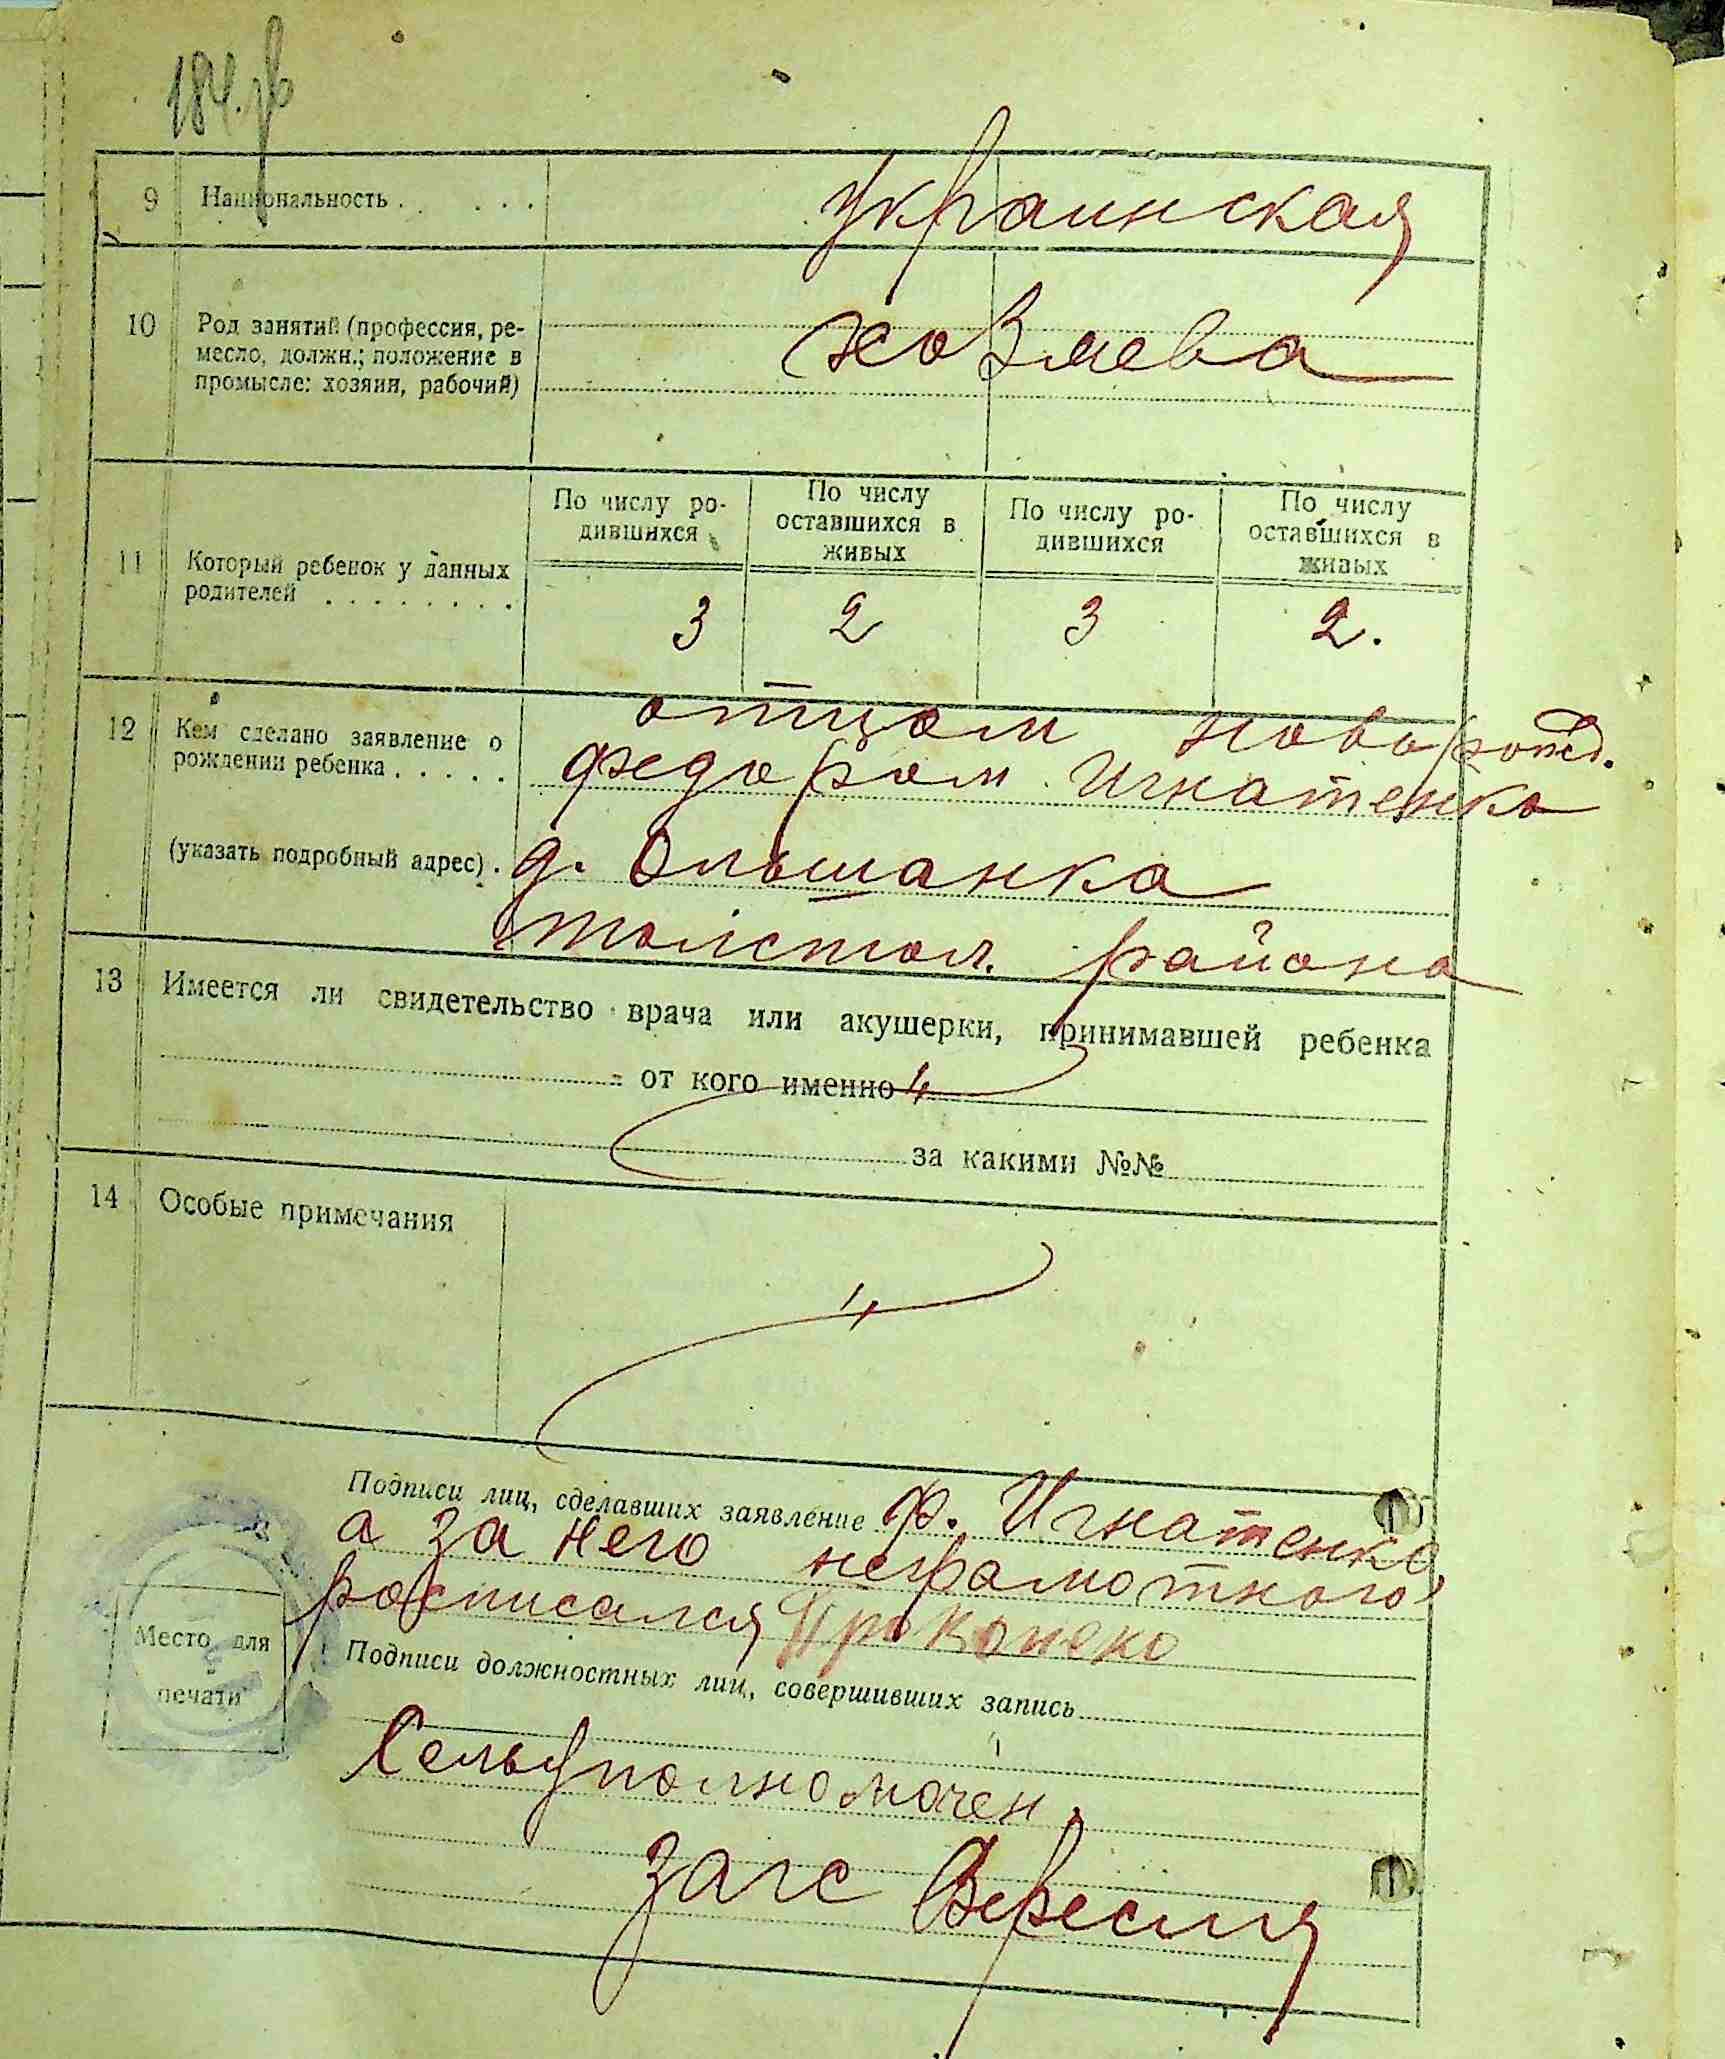 184.
9 Национальность . . . . . украинская
10 Род занятий (профессия, ре-
месло, должн.; положение в
промысле: хозяин, рабочий)
хозяева
11 Который ребенок у данных
родителей . . . . . . . .
По числу ро-
дившихся
По числу
оставшихся в
живых
По числу ро-
дившихся
По числу
оставшихся в
живых
3 2 3 2.
12 Кем сделано заявление о
рождении ребенка . . . . .
(указать подробный адрес) .
отцом новорожд.
федором Игнатенко
д. Ольшанка
толстол. района
13 Имеется ли свидетельство врача или акушерки, принимавшей ребенка
от кого именно
за какими №№
14 Особые примечания
Подписи лиц, сделавших заявление Ф. Игнатенко,
а за него неграмотного
росписался Прокопенко
Место для
печати
Подписи должностных лиц, совершивших запись
Сельуполномочен.
загс